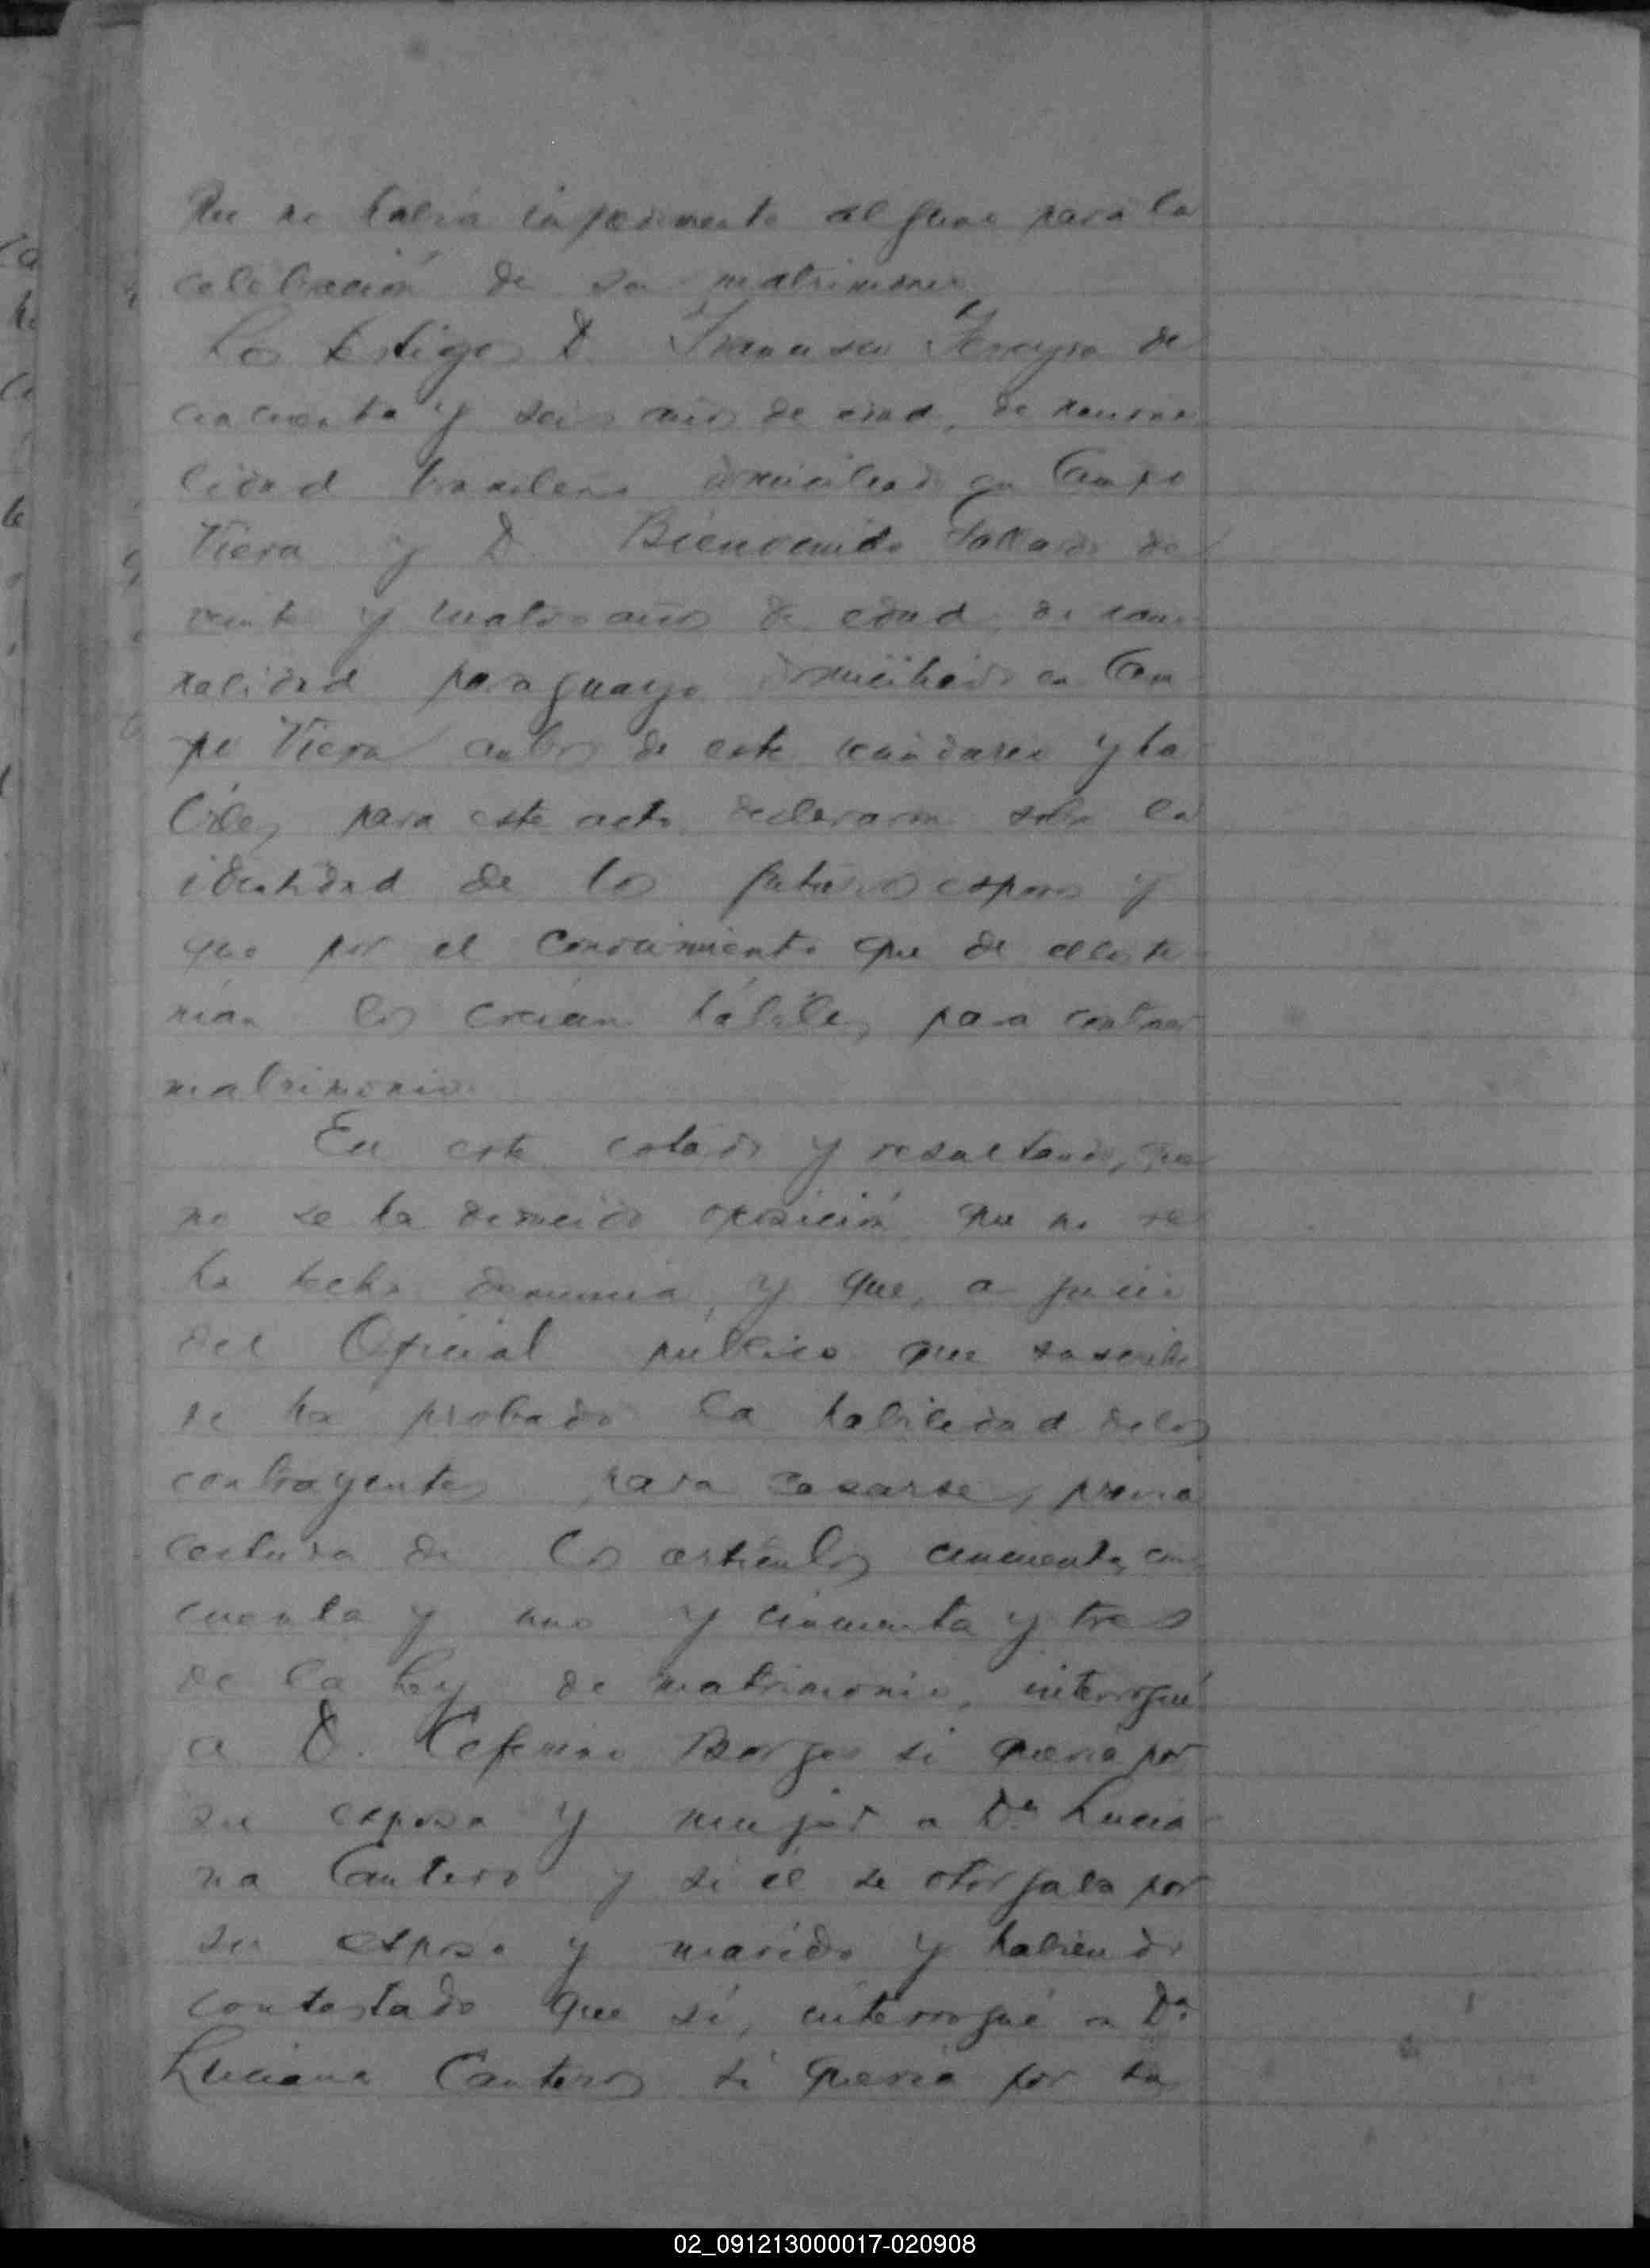 Que no había impedimento alguno para la
celebración de su matrimonio
Los testigos D. Francisco Ferreyra de
cincuenta y seis años de edad, de naciona
lidad brasilera domiciliado en Campo
Viera y D. Bienvenido Gallardo de
veinte y cuatro años de edad, de nacio
nalidad paraguayo domiciliado en Cam
po Viera ambos de este vecindario y ha
biles para este acto declararon sobre la
identidad de los futuros esposos y
que por el conocimiento que de ellos te
nían los creían hábiles para contraer
matrimonio.
En este estado y resultando, que
no se ha deducido oposición que no se
ha hecho denuncia, y que, a juicio
del Oficial público que suscribe
se ha probado la habilidad de los
contrayentes para casarse, previa
lectura de los artículos cincuenta, cin
cuenta y uno y cincuenta y tres
de la Ley de matrimonio, interrogué
a D. Ceferino Borges si quería por
su esposa y mujer a Da Lucia
na Cantero y si él se otorgaba por
su esposo y marido y habiendo
contestado que sí, interrogué a Da
Luciana Cantero si quería por su
02_091213000017-020908